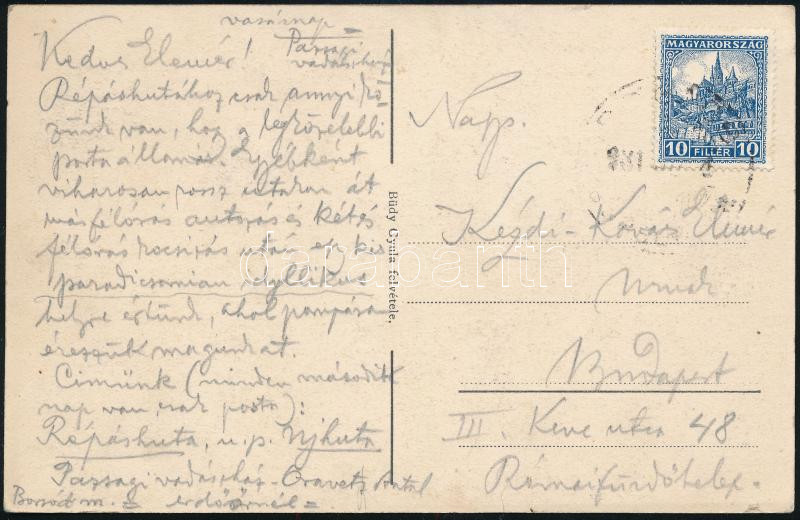 vasárnap
Kedves Elemér!
Pazsagi
vadászház
Répáshutához csak annyi kö
zünk van, hog a legközelebbi
posta állomás. Egyébként
viharosan rossz utakon át
másfélórás autózás és két és
félórás kocsizás után ez kis
paradicsomian idyllikus
helyre értünk, ahol pompásan
érezzük magunkat.
Cimünk (minden második
nap van csak posta):
Répáshuta, u.p. Ujhuta
Pazsagi vadászház - Oravetz Antal
Borsod m. = erdőőrnél =
Büdy Gyula felvétele.
MAGYARORSZÁG
10 FILLÉR 10
931
Nags.
Kézdi-Kovács Elemér
urnak
Budapest
III. Keve utca 48
Rómaifürdőtelep.
darabanth